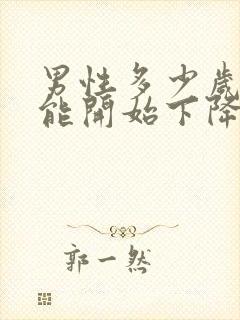 男性多少歲
能開始下降
郭一然